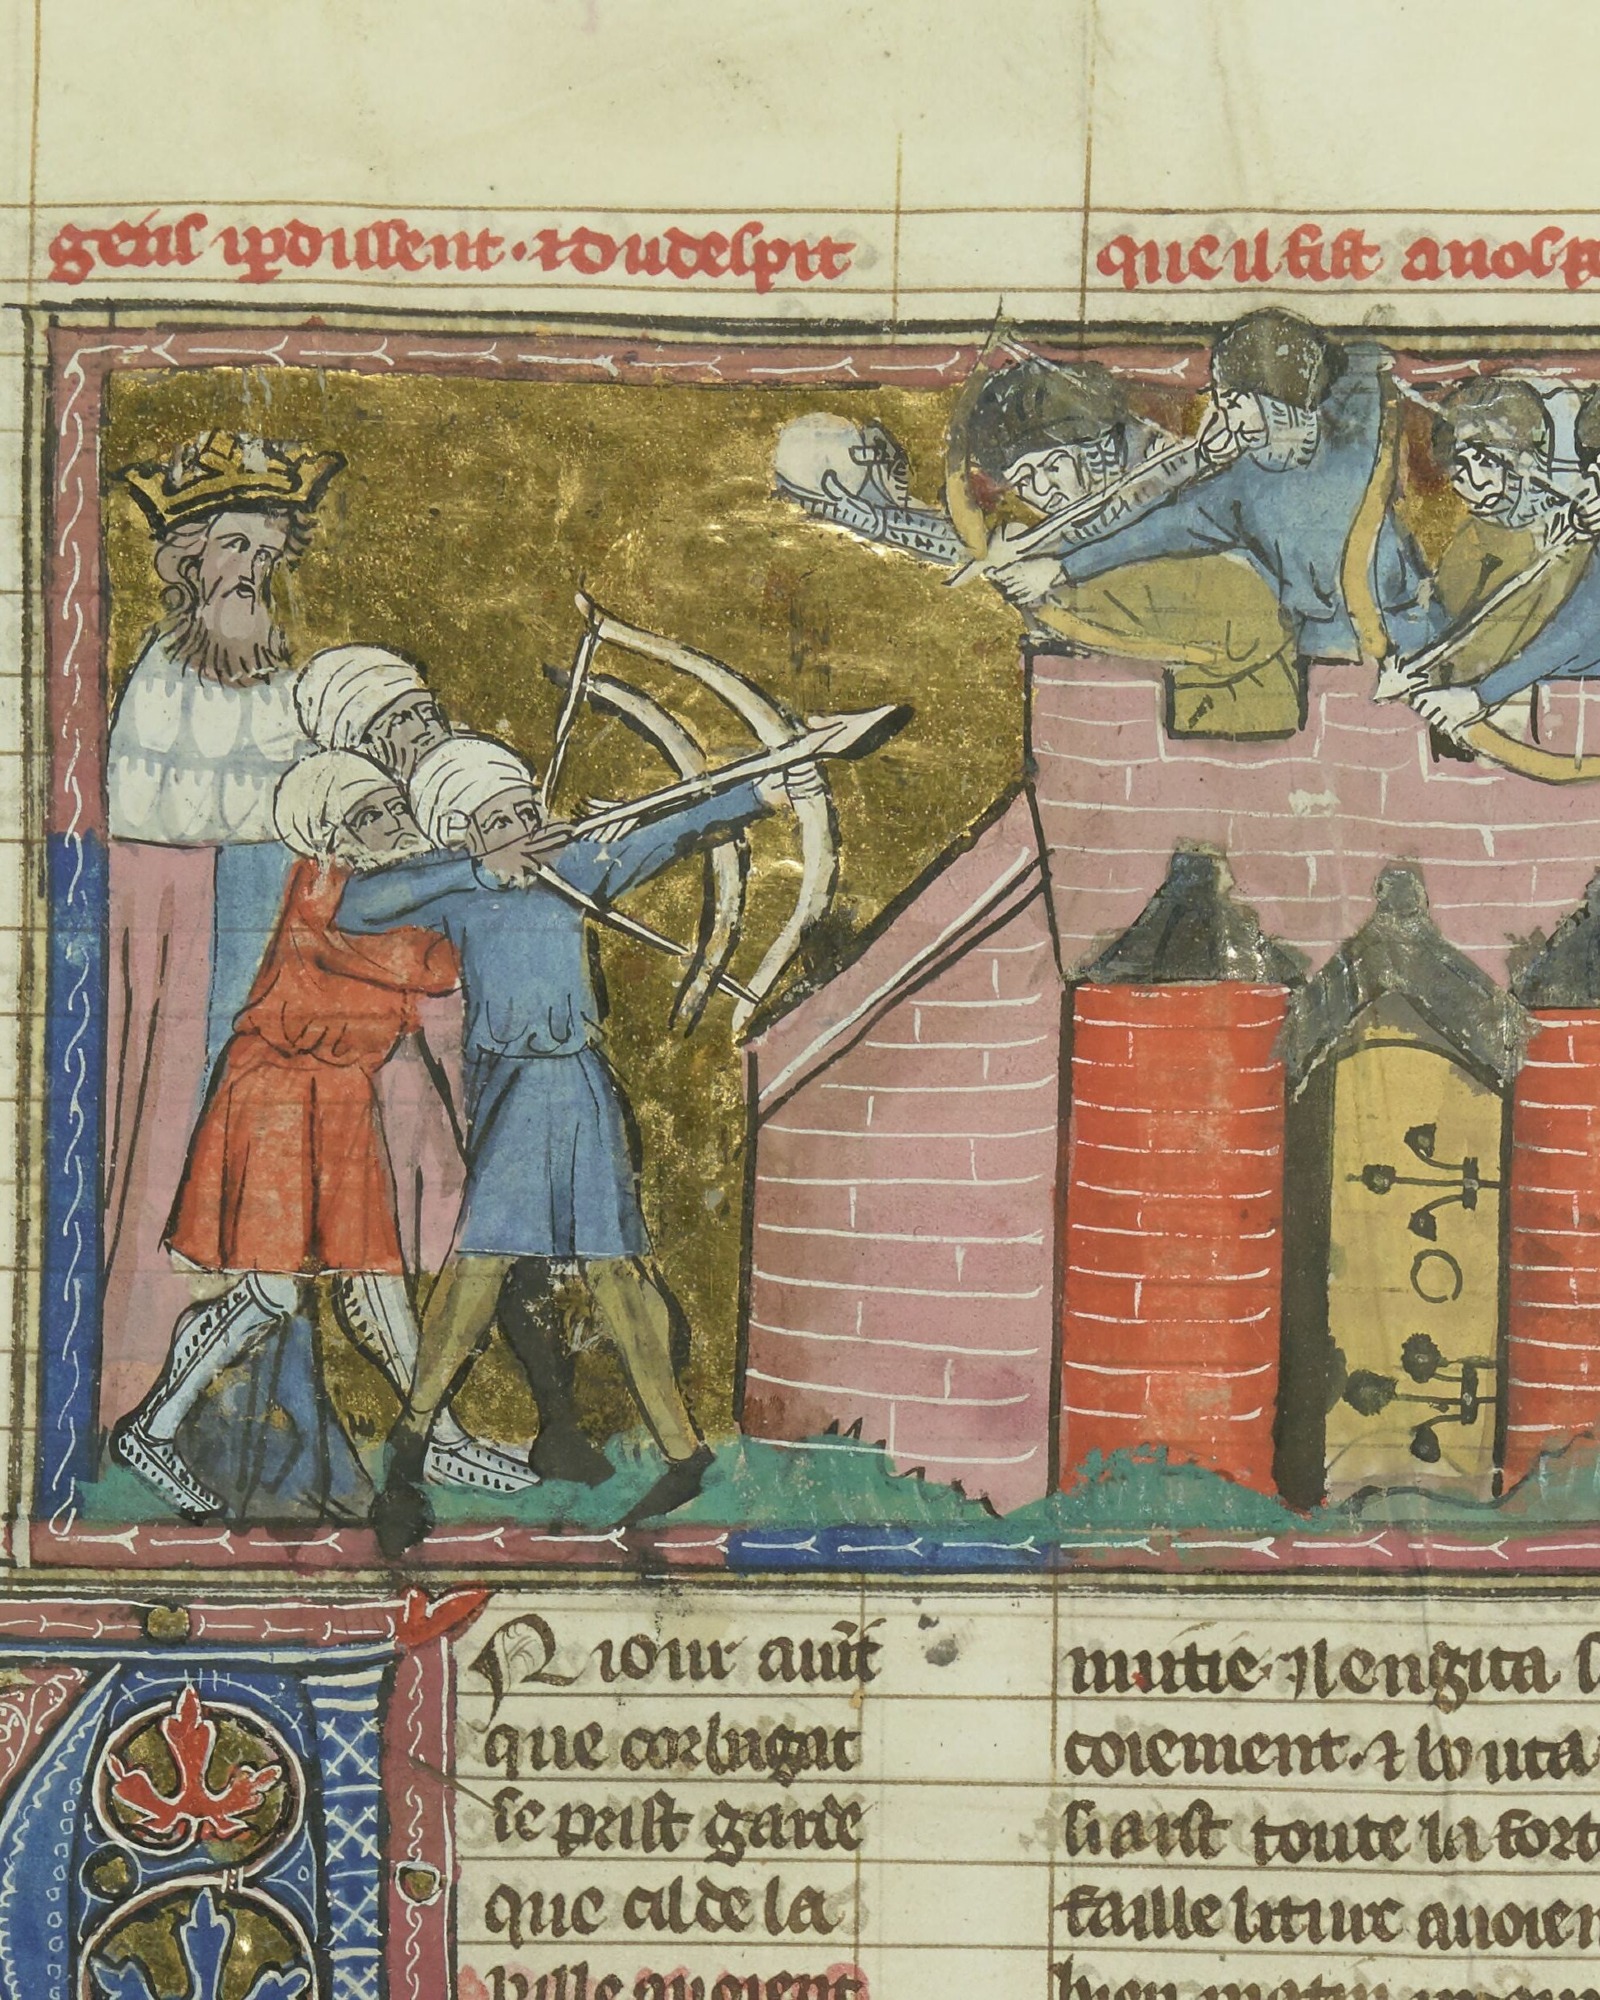 gens ip̱dissent · ⁊ du despit
que il fist a nos
N iour auīt
que corbagat
se prist garde
que cil de la
ville auoient
mutie · Il en gita
coiement · ⁊ bouta
si arst toute la forte
faille li turc auoien
bien